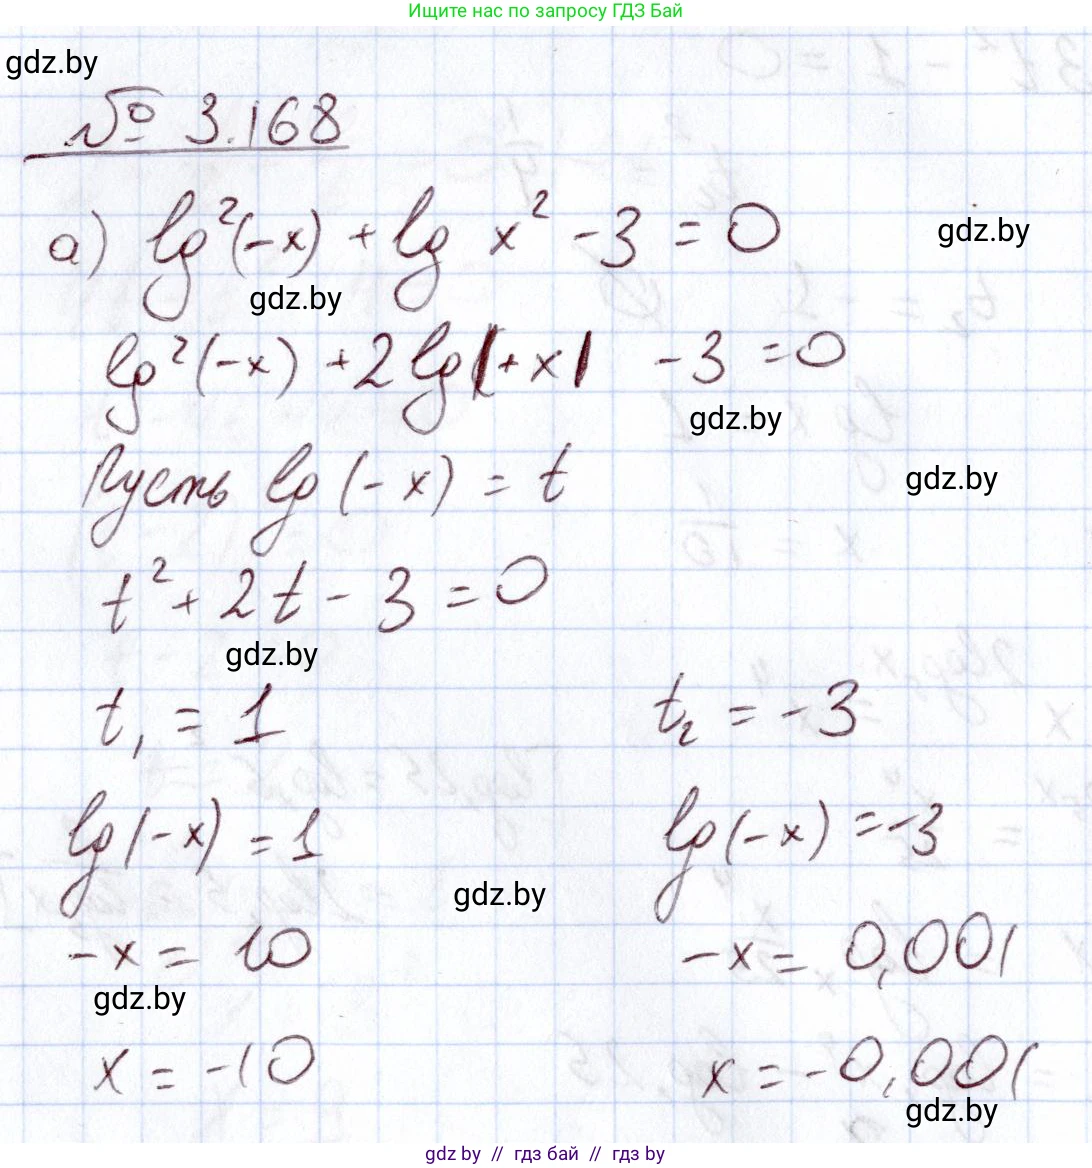 Ищите нас по запросу ГДЗ Бай
gdz.by
№ 3.168
а) lg²(-x) + lg x² - 3 = 0
gdz.by
gdz.by
lg²(-x) + 2 lg |+x| - 3 = 0
gdz.by
Пусть lg (-x) = t
gdz.by
t² + 2t - 3 = 0
gdz.by
t₁ = 1 t₂ = -3
lg(-x) = 1 lg(-x) = -3
gdz.by
-x = 10 -x = 0,001
gdz.by
x = -10 x = -0,001
gdz.by
gdz.by // гдз бай // гдз by